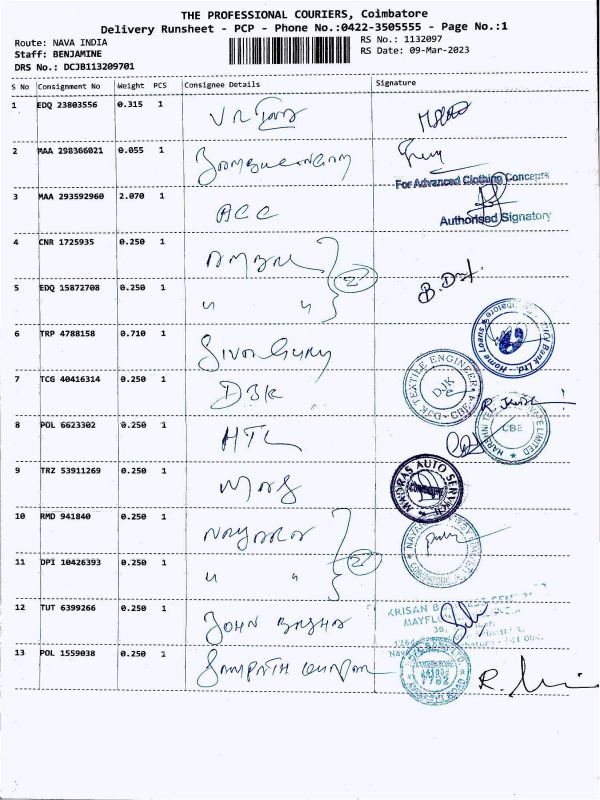 THE PROFESSIONAL COURIERS, Coimbatore
Delivery Runsheet - PCP - Phone No.:0422-3505555 - Page No.:1
Route: NAVA INDIA
RS No.: 1132097
Staff: BENJAMINE
RS Date: 09-Mar-2023
DRS No.: DCJB113209701
S No Consignment No Weight PCS Consignee Details Signature
1 EDQ 23803556 0.315 1
2 MAA 298366021 0.055 1
For Advanced Clothing Concepts
3 MAA 293592960 2.070 1 ACC
Authorised Signatory
4 CNR 1725935 0.250 1
2
5 EDQ 15872708 0.250 1 " "
6 TRP 4788158 0.710 1 Siva Guru
7 TCG 40416314 0.250 1 DJK
TEXTILE ENGINEER
DJK
CBE-4
8 POL 6623302 0.250 1 HTL
CBE
9 TRZ 53911269 0.250 1 MAS
MADRAS AUTO SERVICE
10 RMD 941840 0.250 1 NAYARA
11 DPI 10426393 0.250 1 " "
2
12 TUT 6399266 0.250 1 JOHN BASHA
13 POL 1559038 0.250 1